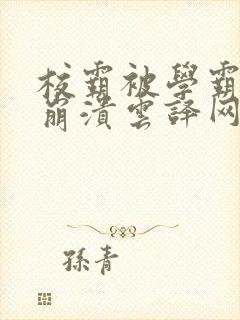 校霸被學霸
崩潰雲譯网
孫青